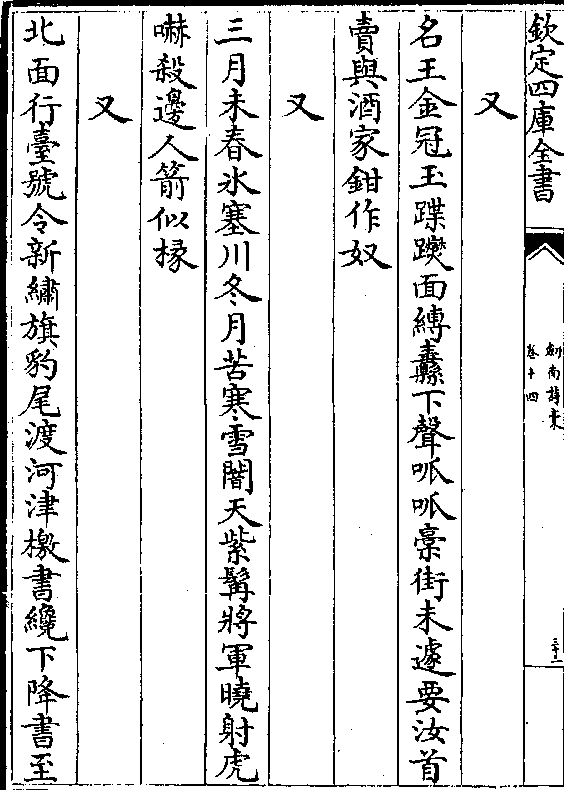 欽定四庫全書
劍南詩稾
卷十四
三十二
又
名王金冠玉蹀躞面縛纛下聲呱呱稾街未遽要汝首
賣與酒家鉗作奴
又
三月未春氷塞川冬月苦寒雪闇天紫髯將軍曉射虎
嚇殺邊人箭似椽
又
北面行臺號令新繡旗豹尾渡河津檄書纔下降書至